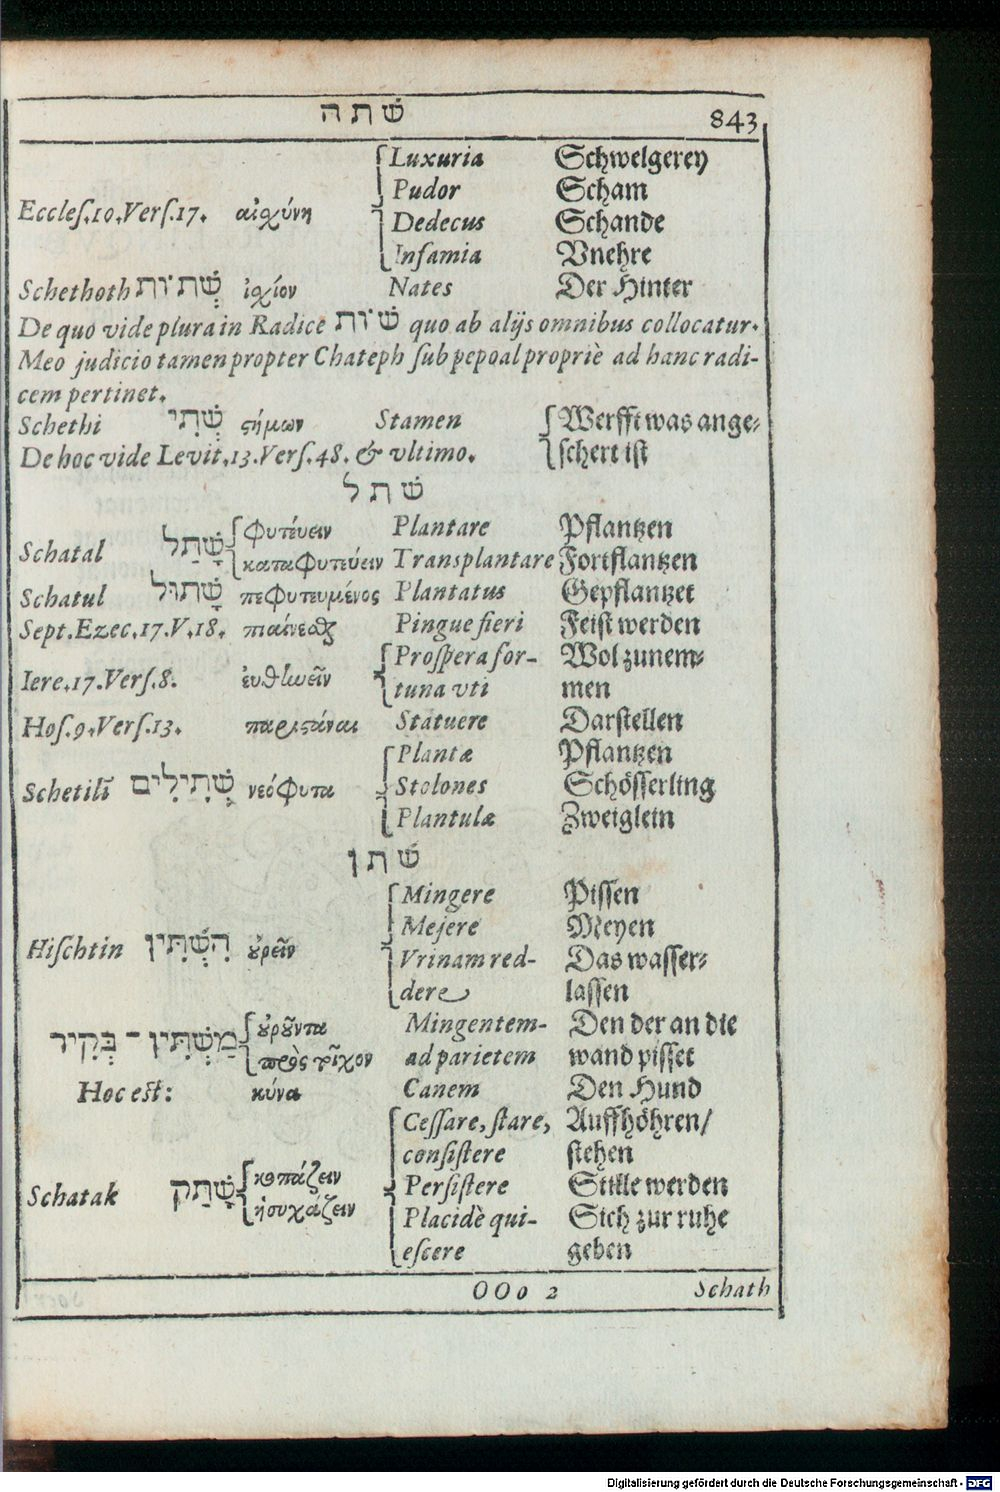 שׁתה 843
Luxuria Schwelgerey
Pudor Scham
Eccles.10.Vers.17. αἰχύνη
Dedecus Schande
Infamia Vnehre
Schethoth שְׁתוֹת ἰχίον Nates Der Hinter
De quo vide plura in Radice שׁוֹת quo ab alijs omnibus collocatur.
Meo judicio tamen propter Chateph sub pepoal propriè ad hanc radi-
cem pertinet.
Schethi שְׁתִי ϛήμων Stamen Werfft was ange-
De hoc vide Levit.13.Vers.48. & vltimo. schert ist
שׁתל
φυτέυειν Plantare Pflantzen
Schatal שָׁתַל
καταφυτέυειν Transplantare Fortflantzen
Schatul שָׁתוּל πεφυτευμένος Plantatus Gepflantzet
Sept.Ezec.17.V.18. πιαίνεσθαι Pingue fieri Feist werden
Prospera for- Wol zunem-
Iere.17.Vers.8. ἐυθωεῖν
tuna vti men
Hos.9.Vers.13. παριϛάναι Statuere Darstellen
Plantæ Pflantzen
Schetilĩ שְׁתִילִים νεόφυτα Stolones Schösserling
Plantulæ Zweiglein
שׁתן
Mingere Pissen
Mejere Meyen
Hischtin הִשְׁתִּין ὀυρεῖν
Vrinam red- Das wasser-
dere lassen
ὀυροῦντα Mingentem- Den der an die
מַשְׁתִּין־בְּקִיר
πρὸς τεῖχον ad parietem wand pisset
Hoc est: κύνα Canem Den Hund
Cessare, stare, Auffhöhren/
consistere stehen
κοπάζειν Persistere Stille werden
Schatak שָׁתַק
ἡσυχάζειν Placidè qui- Sich zur ruhe
escere geben
OOo 2 Schath
Digitalisierung gefördert durch die Deutsche Forschungsgemeinschaft - DFG